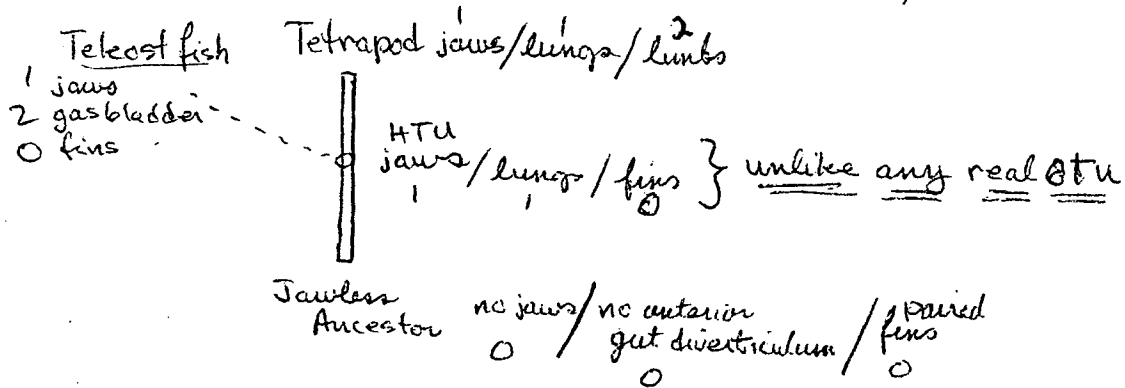 1 1 2
Teleost fish
1 jaws
2 gasbladder
0 fins
Tetrapod jaws/lungs/limbs
HTU
jaws/lungs/fins } unlike any real OTU
1 1 0
Jawless
Ancestor
no jaws/no anterior
gut diverticulum/paired
fins
0 0 0